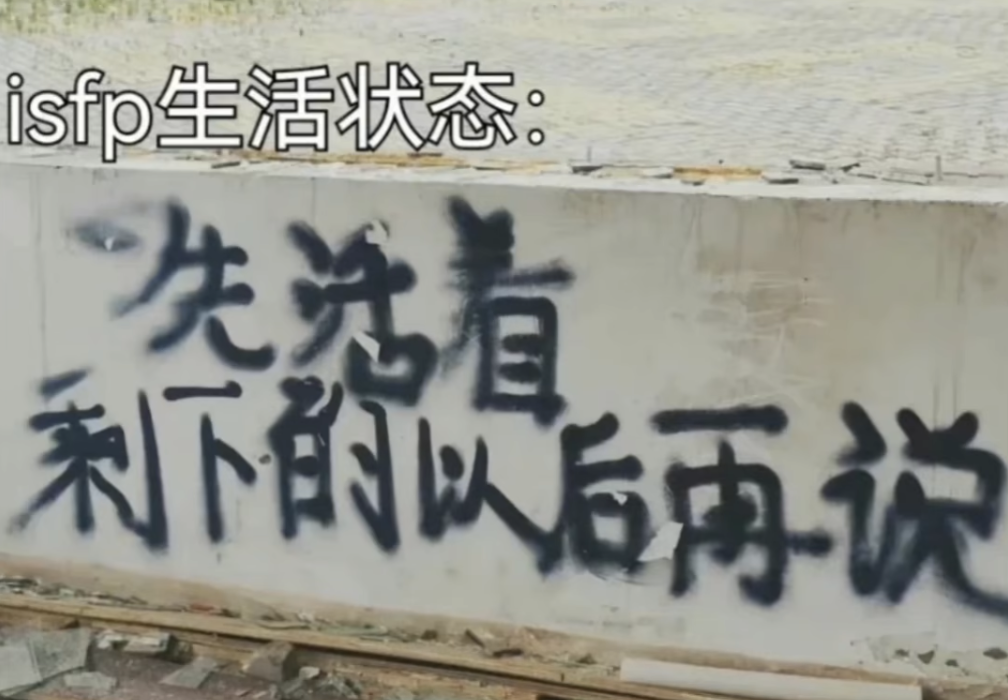 isfp生活状态：
先活着
剩下的以后再说